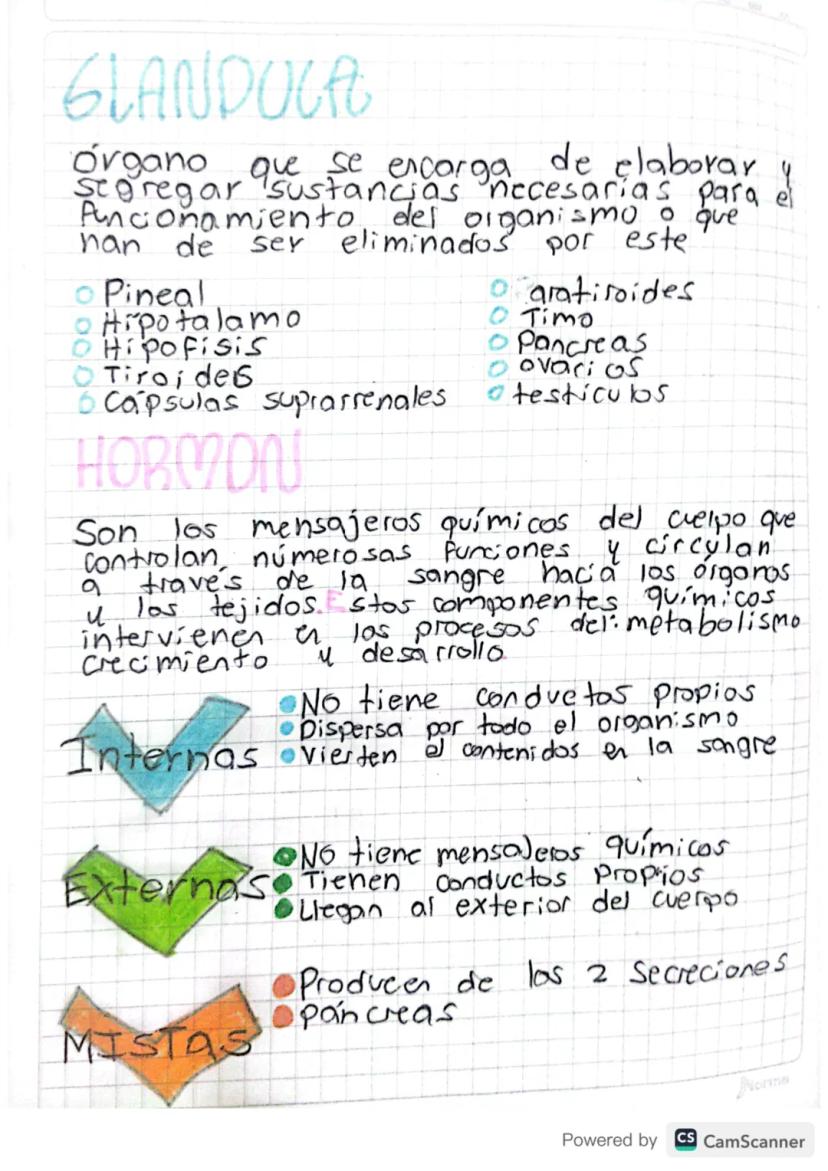 GLANDULA
Órgano que se encarga de elaborar y
segregar sustancias necesarias para el
funcionamiento del organismo o que
han de ser eliminados por este
Pineal
Hipotalamo
Hipofisis
Tiroides
Cápsulas suprarrenales
aratiroides
Timo
Pancreas
ovarios
testículos
HORMON
Son los mensajeros químicos del cuerpo que
controlan, númerosas funciones y circulan
a través de la sangre hacia los órganos
y los tejidos. Estos componentes químicos
intervienen en los procesos del metabolismo
crecimiento y desarrollo
Internas
No tiene conductos propios
Dispersa por todo el organismo
Vierten el contenidos en la sangre
Externas
No tiene mensajeros químicos
Tienen conductos propios
Llegan al exterior del cuerpo
MISTAS
Producen de las 2 secreciones
páncreas
Norma
Powered by CS CamScanner